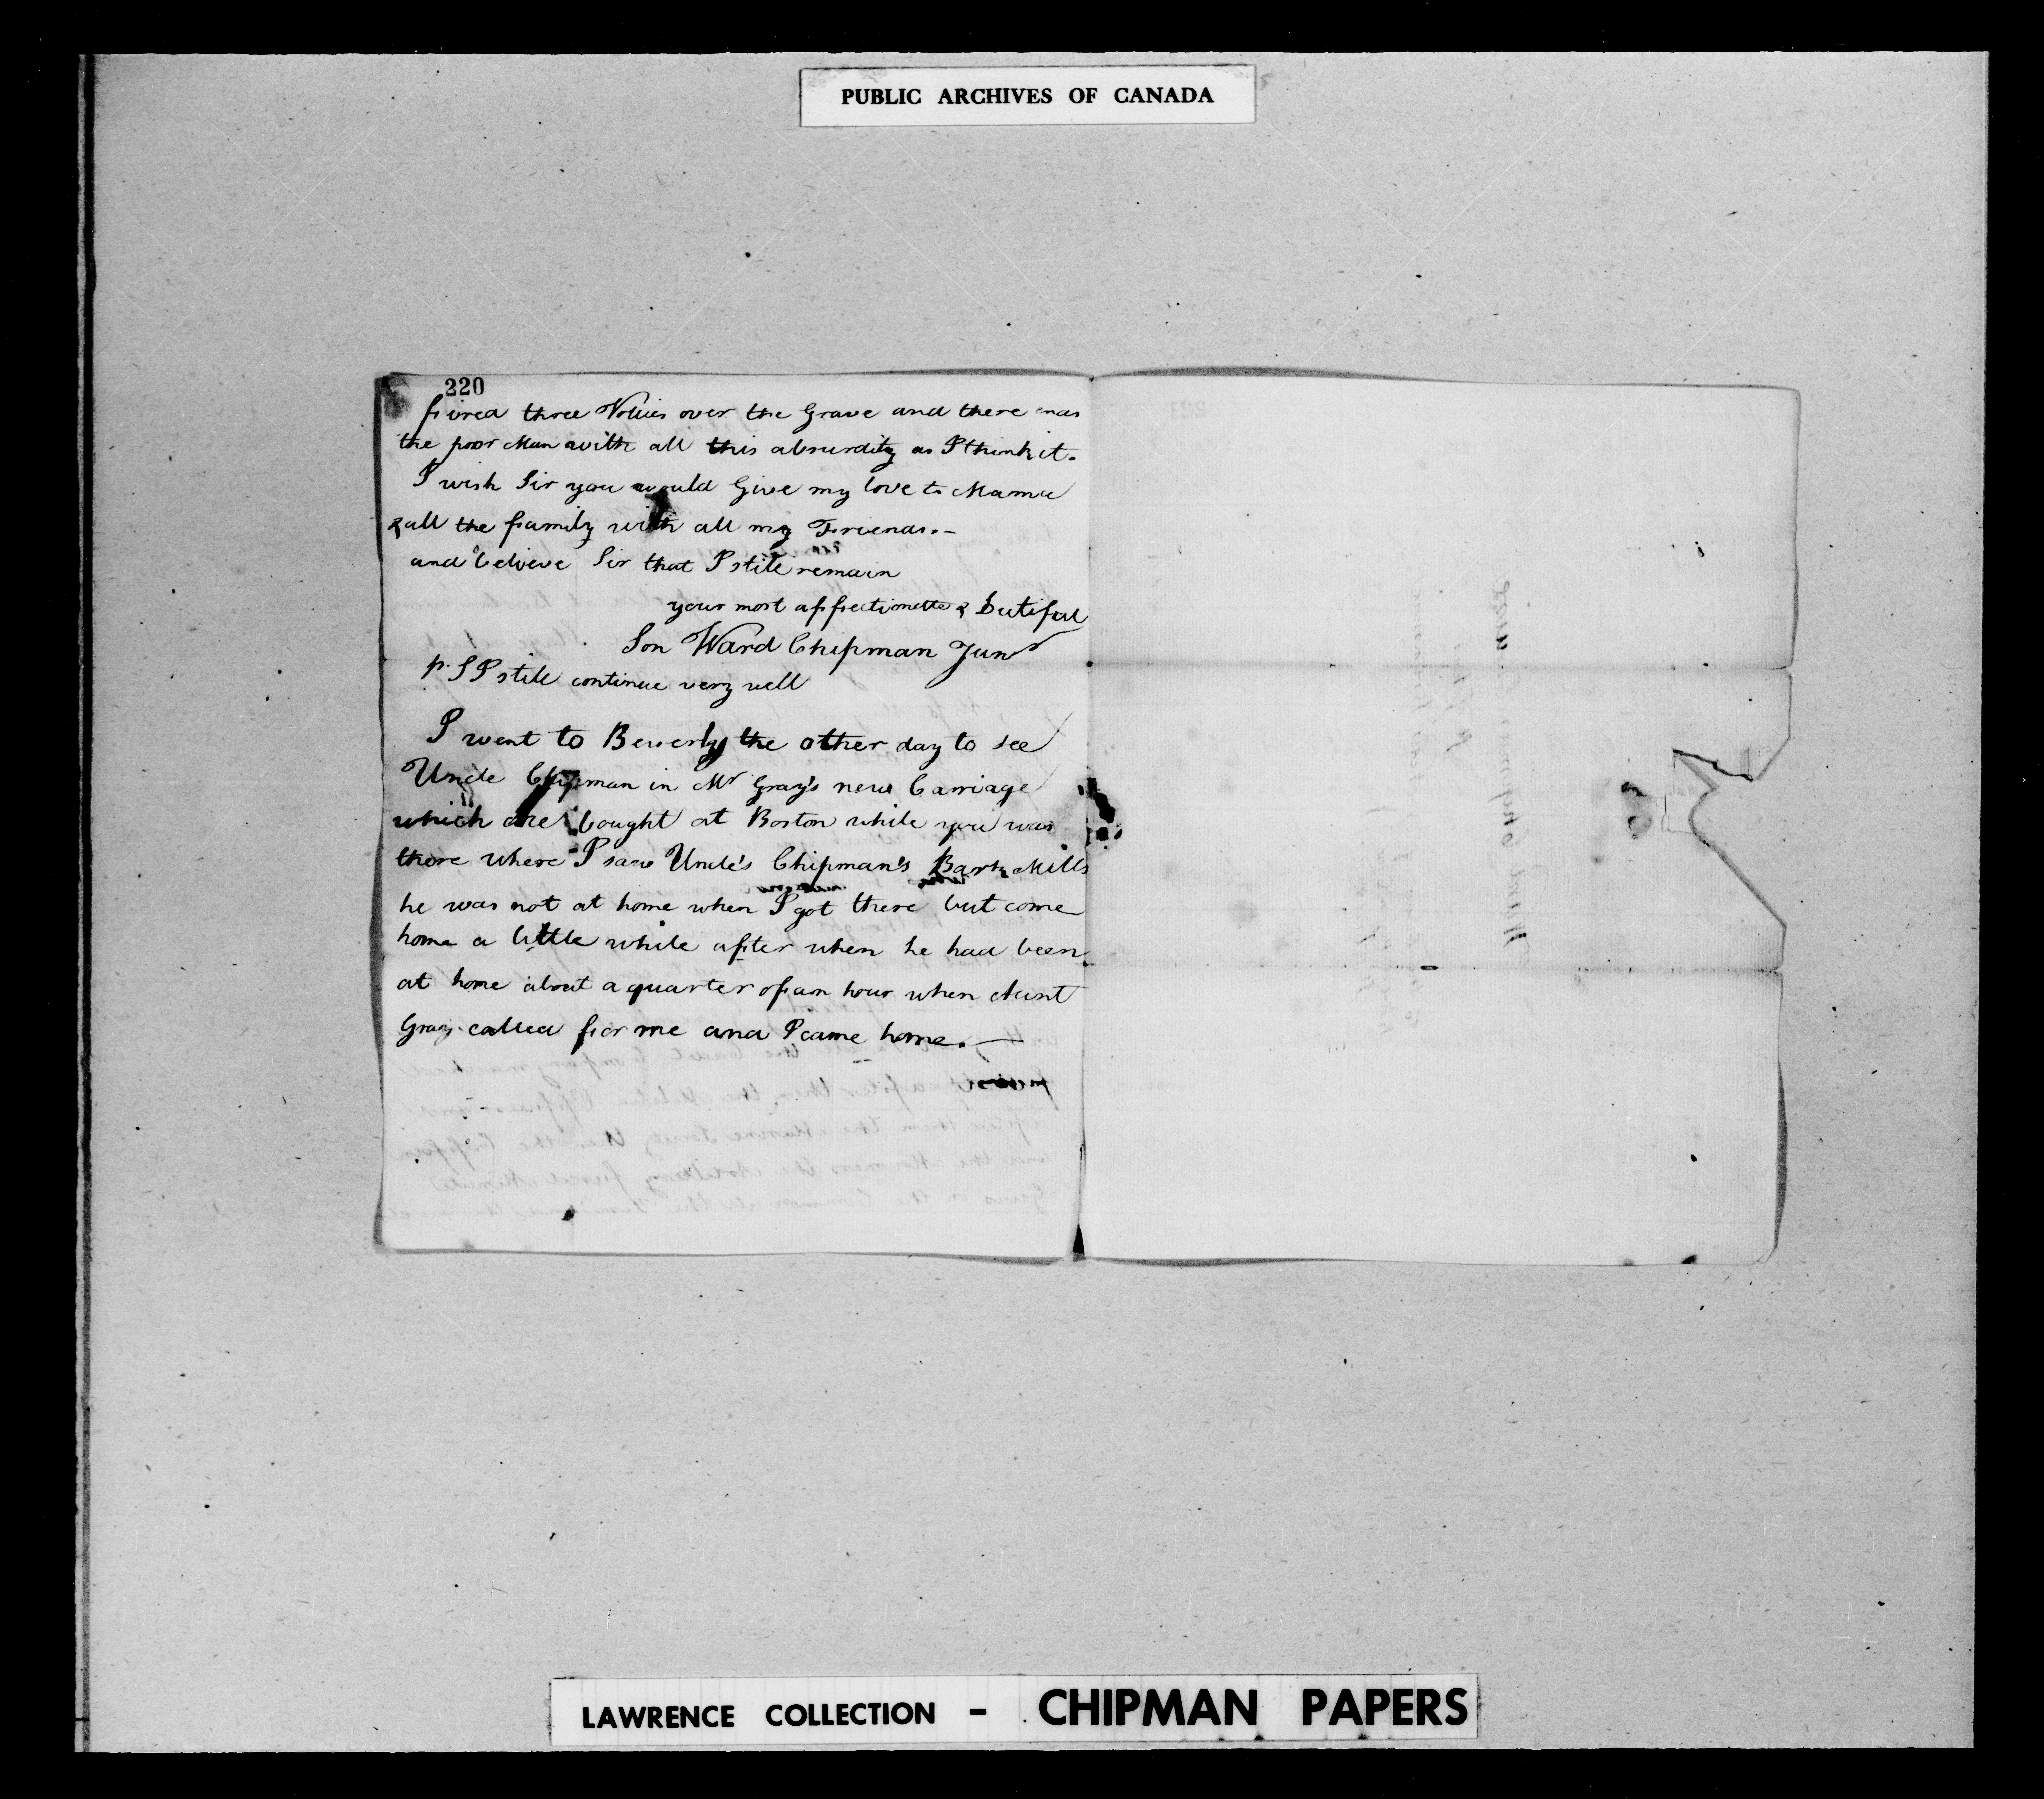 PUBLIC ARCHIVES OF CANADA
220
fired three Vollies over the Grave and there was
the poor Man with all this absurdity as I think it.
I wish Sir you would Give my love to Mama
& all the family with all my Friends.-
and believe Sir that I still remain
your most affectionatte & butiful
Son Ward Chipman Junr
P. S I still continue very well
I went to Beverly the other day to see
Uncle Chipman in Mr Gray's new Carriage
which bought at Boston while you was
there where I saw Uncle's Chipman's Bark Mills
he was not at home when I got there but come
home a little while after when he had been
at home about a quarter of an hour when Aunt
Gray called for me and I came home.—
LAWRENCE COLLECTION - CHIPMAN PAPERS